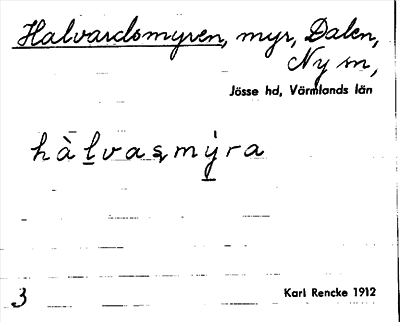 Halvardsmyren, myr, Dalen,
Ny sn,
Jösse hd, Värmlands län
hàlvasmýra
3
Karl Rencke 1912